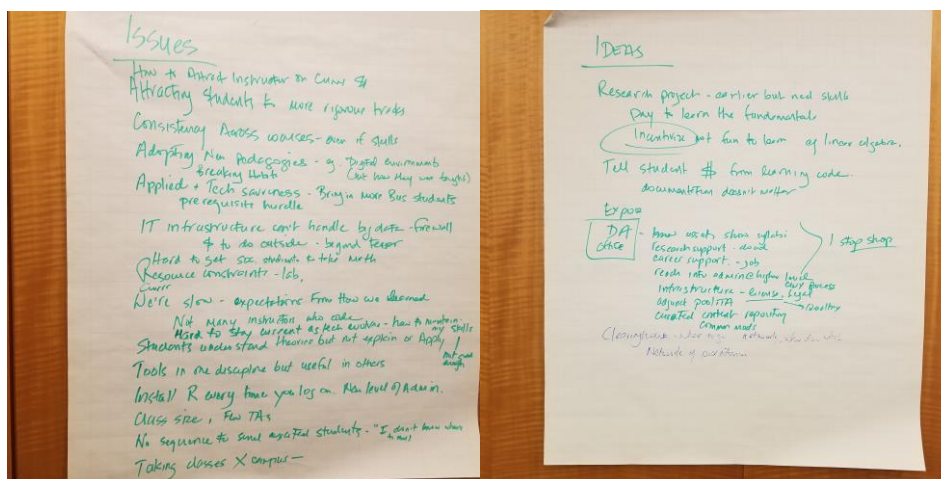 Issues
How to Attract Instructor on Curr $
Attracting students to more rigorous tracks
Consistency Across courses - even if skills
Adopting New Pedagogies - eg. Digital environments
Breaking Habits (not how they were taught)
Applied + Tech savviness - Bring in more Bus students
prerequisite hurdle
IT infrastructure can't handle big data - firewall
$ to do outside - beyond
Hard to get students to take math
Resource constraints - lab,
Curr
We're slow - expectations from How we learned
Not many instructors who code
Hard to stay current as tech evolves - how to maintain my skills
Students understand theories but not explain or Apply
not good enough
Tools in one discipline but useful in others
Install R every time you log on. New level of Admin.
Class size, Few TAs
No sequence to send excited students - "I don't know where
Taking classes X campus -
IDEAS
Research project - earlier but need skills
Pay to learn the fundamentals
Incentivize not fun to learn eg linear algebra.
Tell student $ from learning code.
documentation doesn't matter
Expose
DA office - know assets, share syllabi
research support - cloud
career support. - job
reach into admin @ higher level
infrastructure - license, legal
adjunct pool/TA
curated content repository
common mods
1 stop shop
Clearinghouse - network
Network of